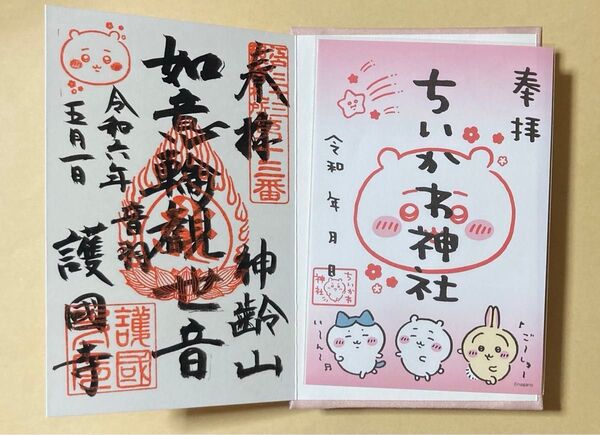 奉拝
ちいかわ神社
令和 年 月 日
ちいかわ
神社
い～ん～
ご～しゅ～
©nagano
奉拝
神齢山
如意輪観世音
音羽
護國寺
令和六年
五月一日
護國